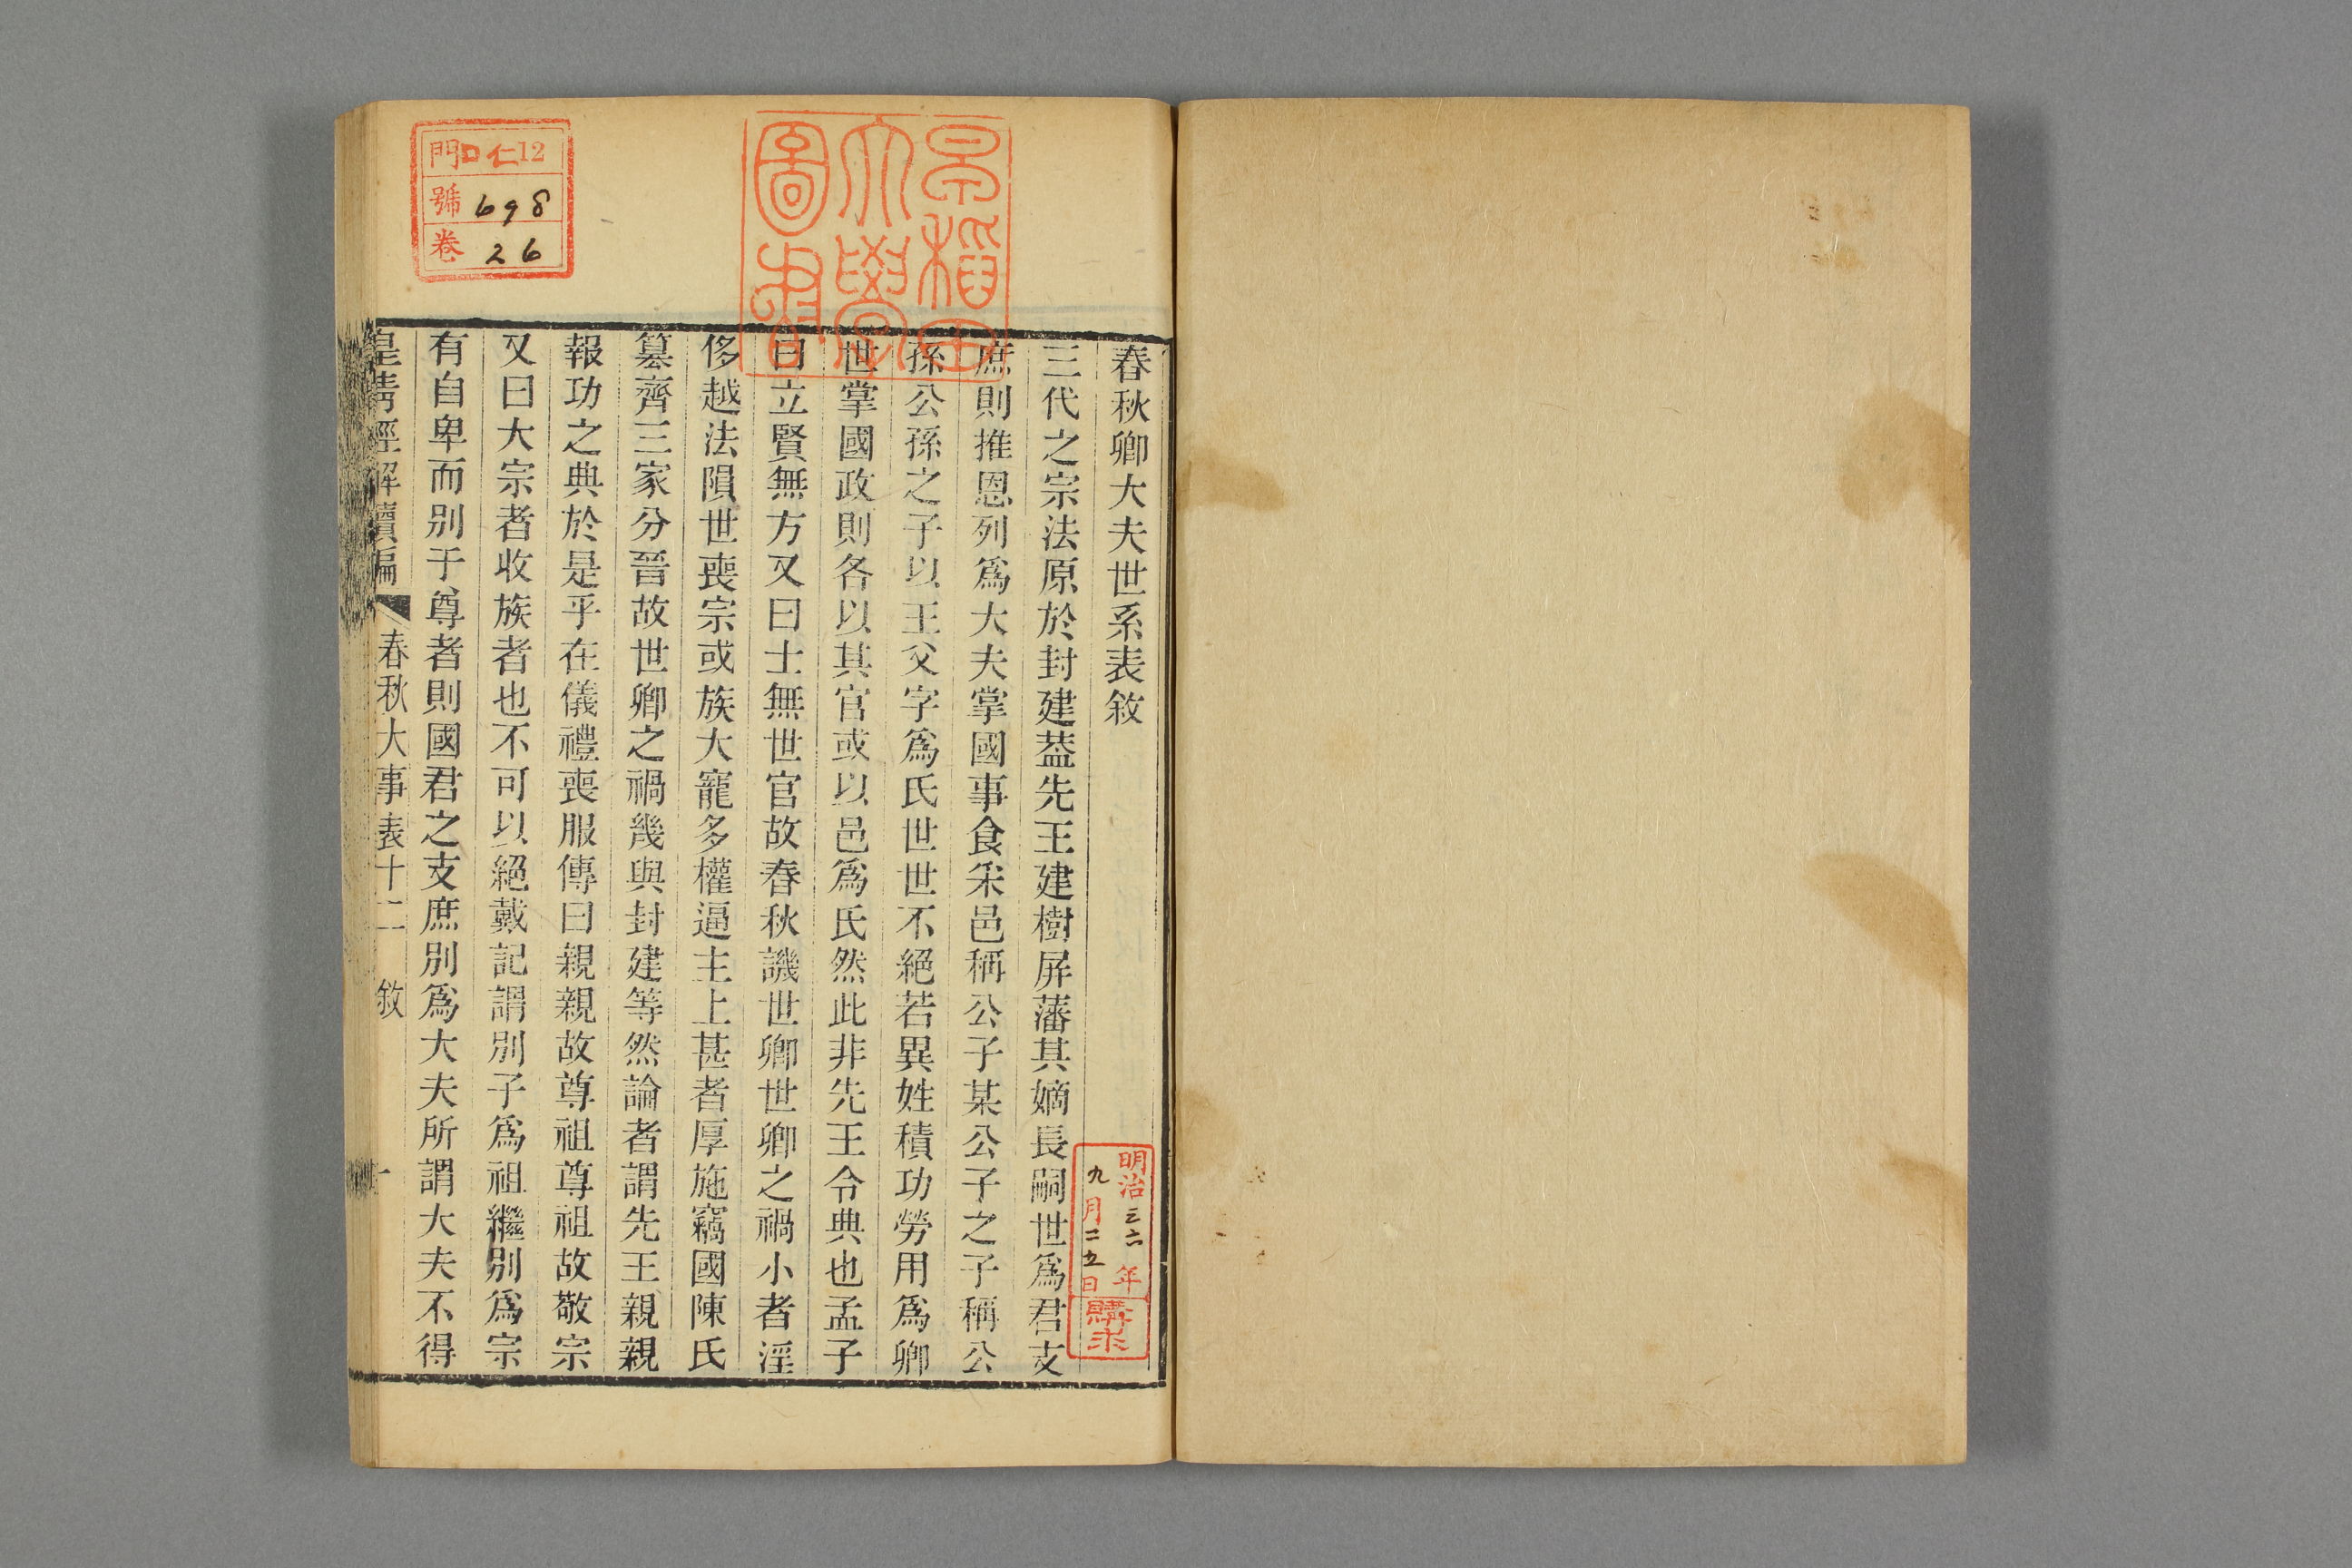 春秋卿大夫世系表敘
三代之宗法原於封建葢先王建樹屏藩其嫡長嗣世爲君支
庶則推恩列爲大夫掌國事食采邑稱公子某公子之子稱公
孫公孫之子以王父字爲氏世世不絕若異姓積功勞用爲卿
世掌國政則各以其官或以邑爲氏然此非先王令典也孟子
曰立賢無方又曰士無世官故春秋譏世卿世卿之禍小者淫
侈越法隕世喪宗或族大寵多權逼主上甚者厚施竊國陳氏
篡齊三家分晉故世卿之禍幾與封建等然論者謂先王親親
報功之典於是乎在儀禮喪服傳曰親親故尊祖尊祖故敬宗
又曰大宗者收族者也不可以絕戴記謂別子爲祖繼別爲宗
有自卑而别于尊者則國君之支庶別爲大夫所謂大夫不得
皇清經解續編 春秋大事表十二 敘 一
早稻田
大學
圖書
門 口仁12
號 698
卷 26
明治三六年
九月二五日
購求